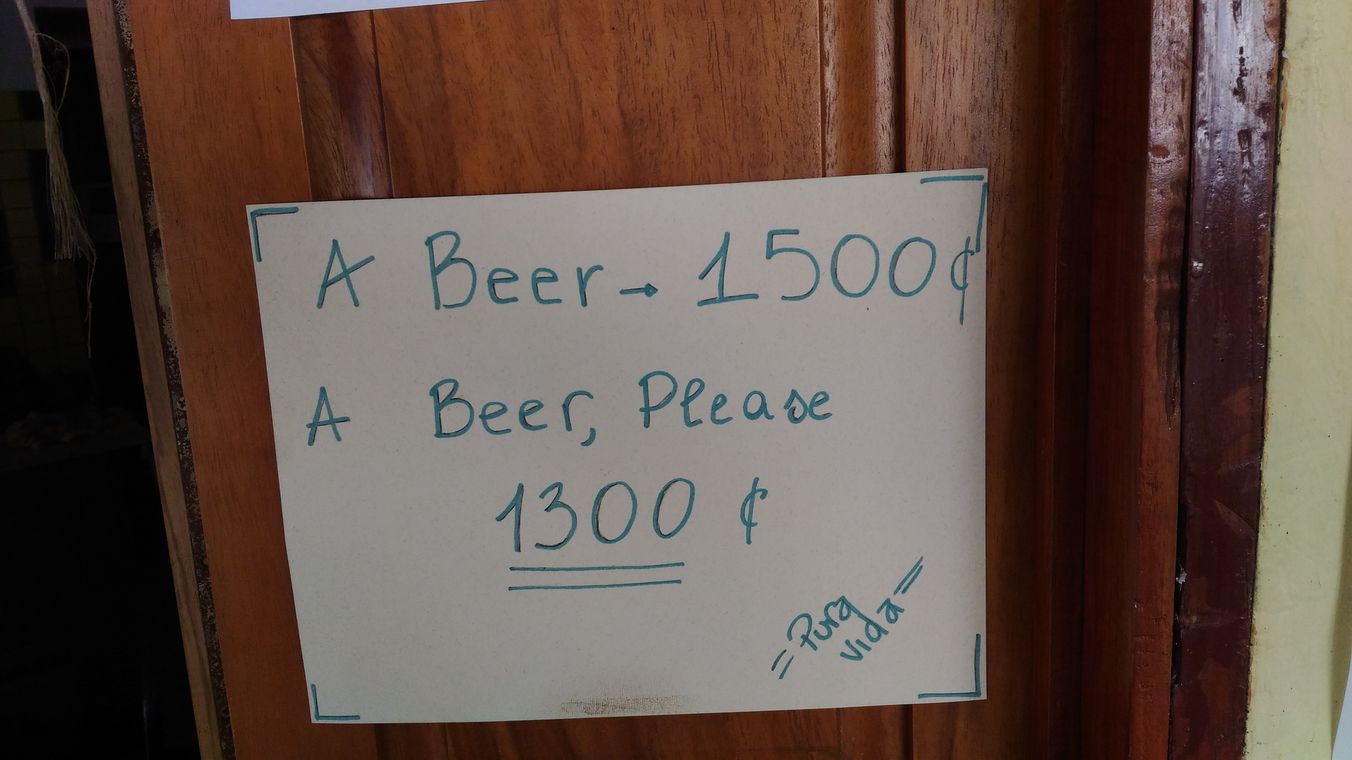 A Beer → 1500¢
A Beer, Please
1300 ¢
= Pura
vida =